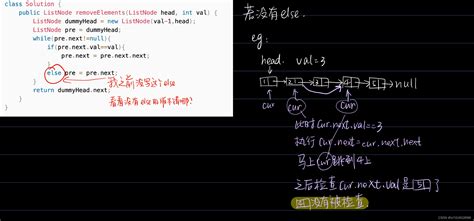 class Solution {
public ListNode removeElements(ListNode head, int val) {
ListNode dummyHead = new ListNode(val-1,head);
ListNode pre = dummyHead;
while(pre.next!=null){
if(pre.next.val==val){
pre.next = pre.next.next;
}
else pre = pre.next;
}
return dummyHead.next;
}
}
我之前没写这个else
看看没有else
若没有else.
eg:
head. val=3
1 2 3 4 5 null
cur cur cur
此时cur.next.val==3
执行cur.next=cur.next.next
马上cur跳到4上
之后检查cur.next.val是5了
四没有被检查.